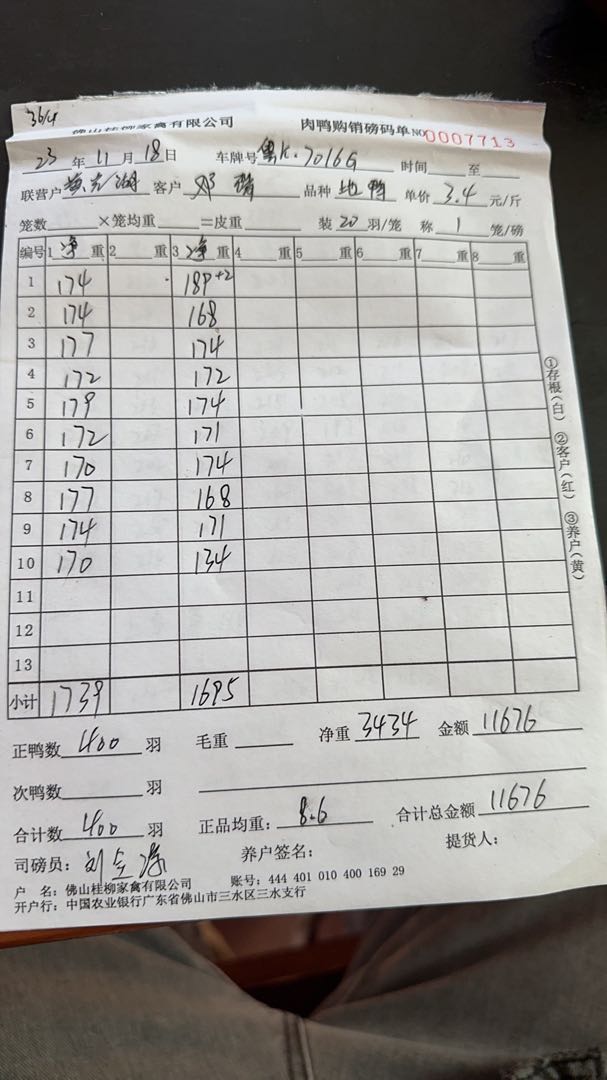 364
佛山桂柳家禽有限公司 肉鸭购销磅码单 NO 0007713
23年11月18日 车牌号 粤K·7016G 时间 至
联营户 客户 邓 品种 地鸭 单价 3.4 元/斤
笼数 ×笼均重 =皮重 装 20 羽/笼 称 1 笼/磅
编号 1 净 重 2 重 3 净 重 4 重 5 重 6 重 7 重 8 重
1 174 189+2
2 174 168
3 177 174
4 172 172
5 179 174
6 172 171
7 170 174
8 177 168
9 174 171
10 170 134
11
12
13
小计 1739 1695
①存根(白) ②客户(红) ③养户(黄)
正鸭数 400 羽 毛重 净重 3434 金额 11676
次鸭数 羽
合计数 400 羽 正品均重: 8.6 合计总金额 11676
司磅员: 刘 养户签名: 提货人:
户 名: 佛山桂柳家禽有限公司 账号: 444 401 010 400 169 29
开户行: 中国农业银行广东省佛山市三水区三水支行